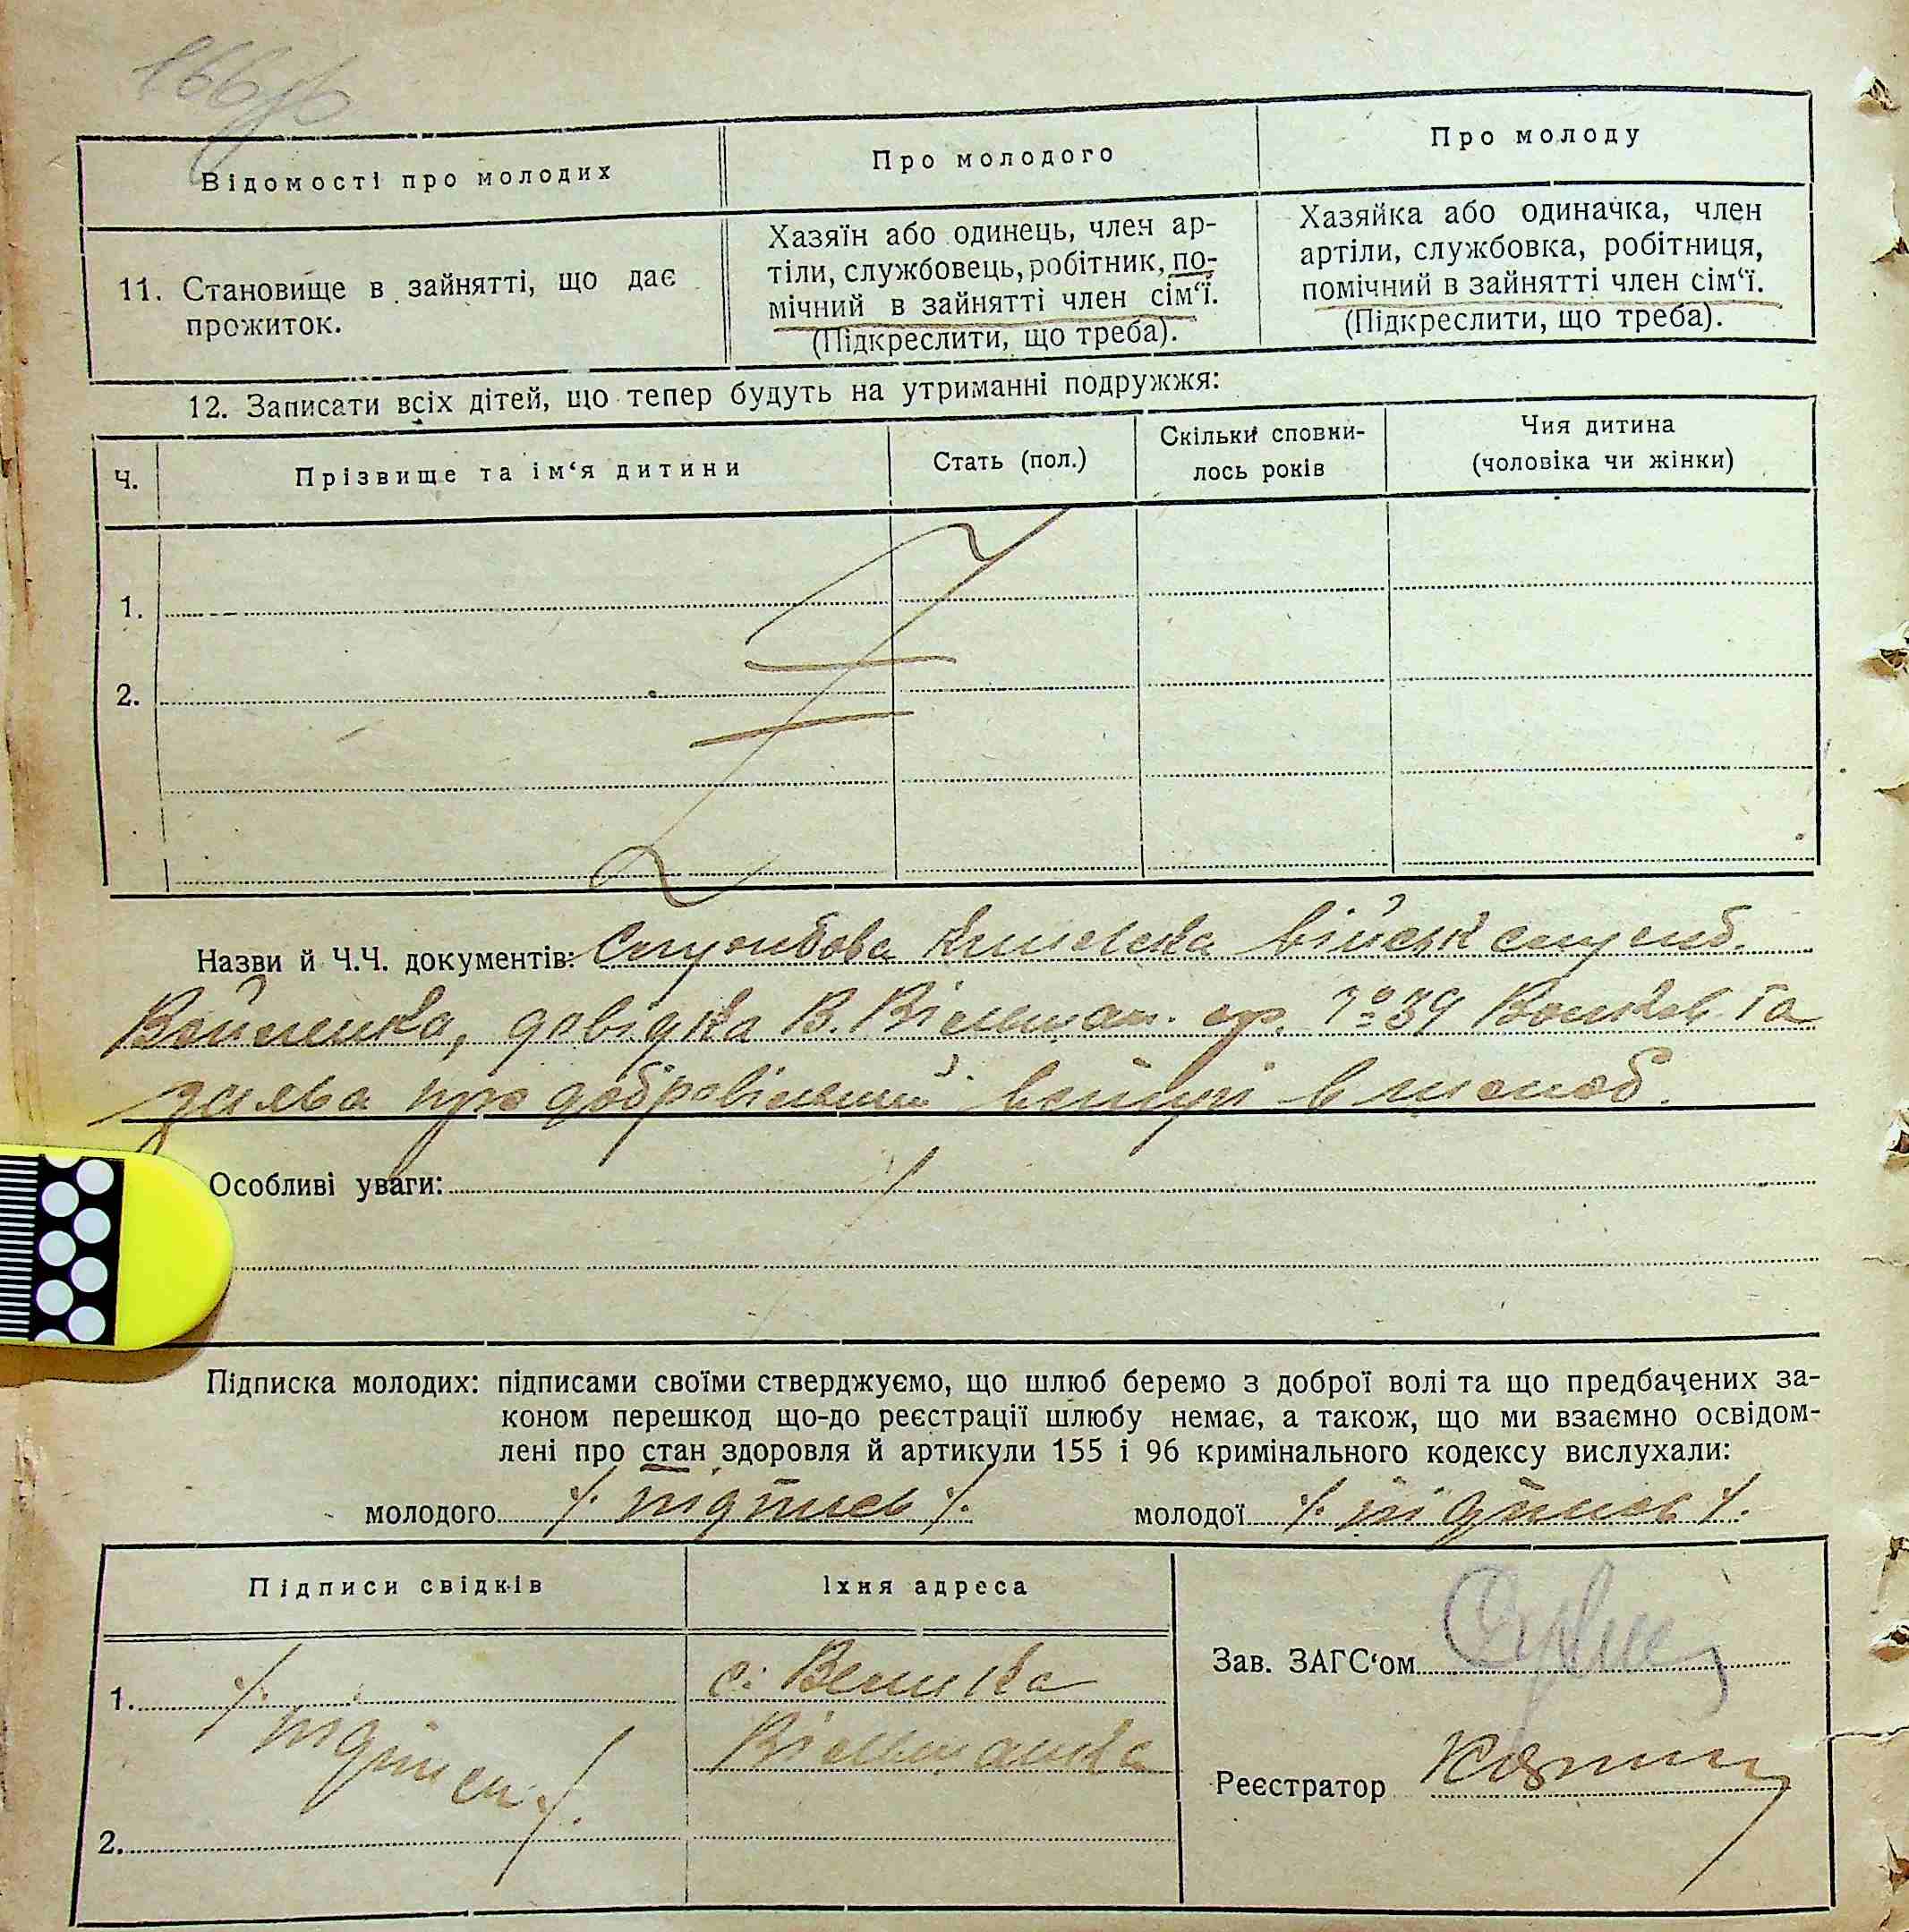 Відомості про молодих
Про молодого
Про молоду
11. Становище в зайнятті, що дає
прожиток.
Хазяїн або одинець, член ар-
тіли, службовець, робітник, по-
мічний в зайнятті член сім‘ї.
(Підкреслити, що треба).
Хазяйка або одиначка, член
артіли, службовка, робітниця,
помічний в зайнятті член сім‘ї.
(Підкреслити, що треба).
12. Записати всіх дітей, що тепер будуть на утриманні подружжя:
Ч.
Прізвище та ім‘я дитини
Стать (пол.)
Скільки сповни-
лось років
Чия дитина
(чоловіка чи жінки)
1.
2.
Назви й Ч.Ч. документів: Службова книжка військ служб.
довідка В. Вільшан. с/р. № 39 та
заява про добровільний вступ в шлюб.
Особливі уваги:
Підписка молодих: підписами своїми стверджуємо, що шлюб беремо з доброї волі та що предбачених за-
коном перешкод що-до реєстрації шлюбу немає, а також, що ми взаємно освідом-
лені про стан здоровля й артикули 155 і 96 кримінального кодексу вислухали:
молодого /. підпись /. молодої /. підпись /.
Підписи свідків
Їхня адреса
1. /. підписи /.
с. Велика
Вільшанка
2.
Зав. ЗАГС‘ом
Реєстратор